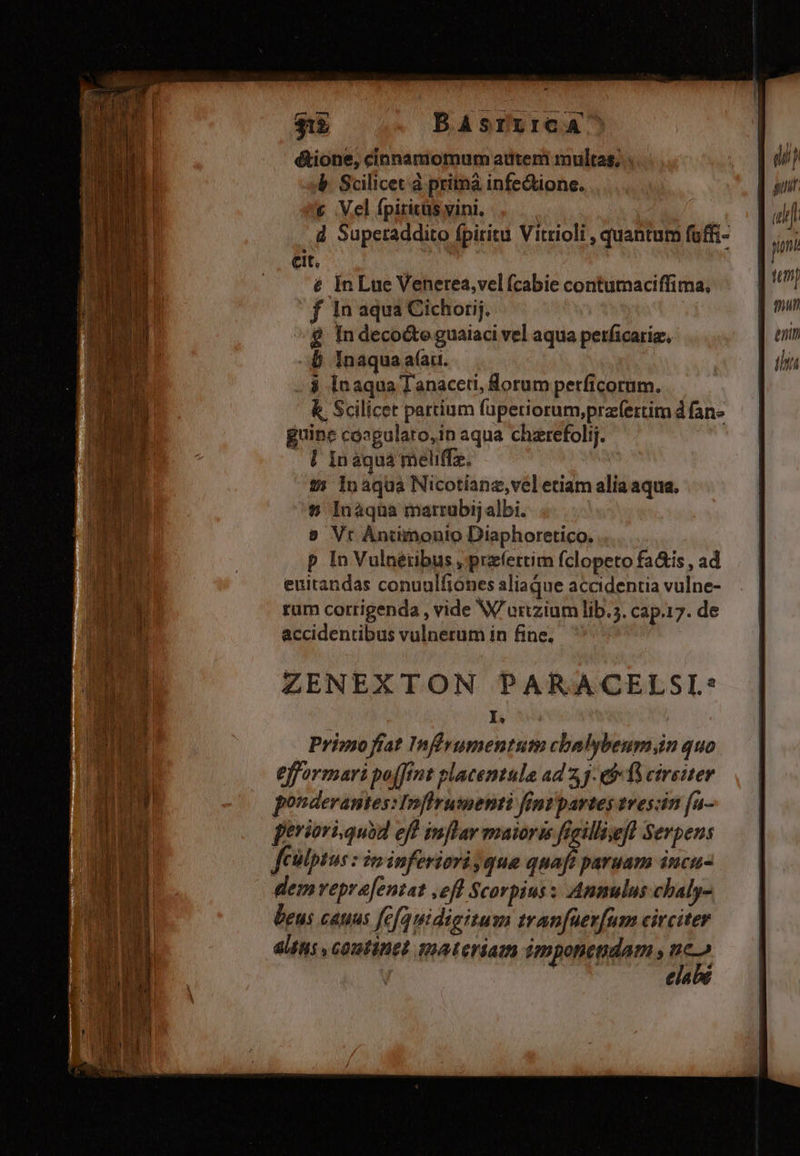 312 BASILICA
ctione, cinnamomum autem multas.
b Scilicet à primâ infectione.
c Vel ſpiritûs vini.
d Superaddito ſpiritu Vitrioli, quantum ſuffi-
cit.
e In Lue Venerea, vel ſcabie contumaciſſima.
f In aqua Cichorij.
g In decocto guaiaci vel aqua perſicariæ.
h In aqua aſari.
i In aqua Tanaceti, florum perſicorum.
k Scilicet partium ſuperiorum, præſertim à ſan-
guine coagulato, in aqua chærefolij.
l In aqua meliſſæ.
m In aqua Nicotianæ, vel etiam alia aqua.
n In aqua marrubij albi.
o Vt Antimonio Diaphoretico.
p In Vulneribus, præſertim ſclopeto factis, ad
euitandas conuulſiones aliaque accidentia vulne-
rum corrigenda, vide Wurtzium lib.3. cap.17. de
accidentibus vulnerum in fine.
ZENEXTON PARACELSI.
I.
Primo fiat Inſtrumentum chalybeum, in quo
efformari poſſint placentulæ ad ʒj. & ß circiter
ponderantes: Inſtrumenti ſint partes tres: in ſu-
periori, quòd eſt inſtar maioris ſigilli, eſt Serpens
ſculptus: in inferiori, que quaſi paruam incu-
dem repræſentat, eſt Scorpius: Annulus chaly-
beus cauus ſeſquidigitum tranſuerſum circiter
altus, continet materiam imponendam, ne
elabi